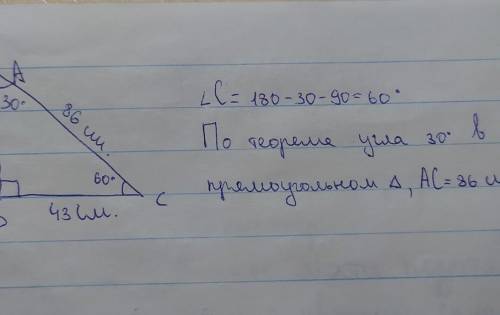 A
30°
86 см.
60°
43 см.
C
∠C = 180-30-90=60°
По теореме угла 30° в
прямоугольном Δ, AC=86